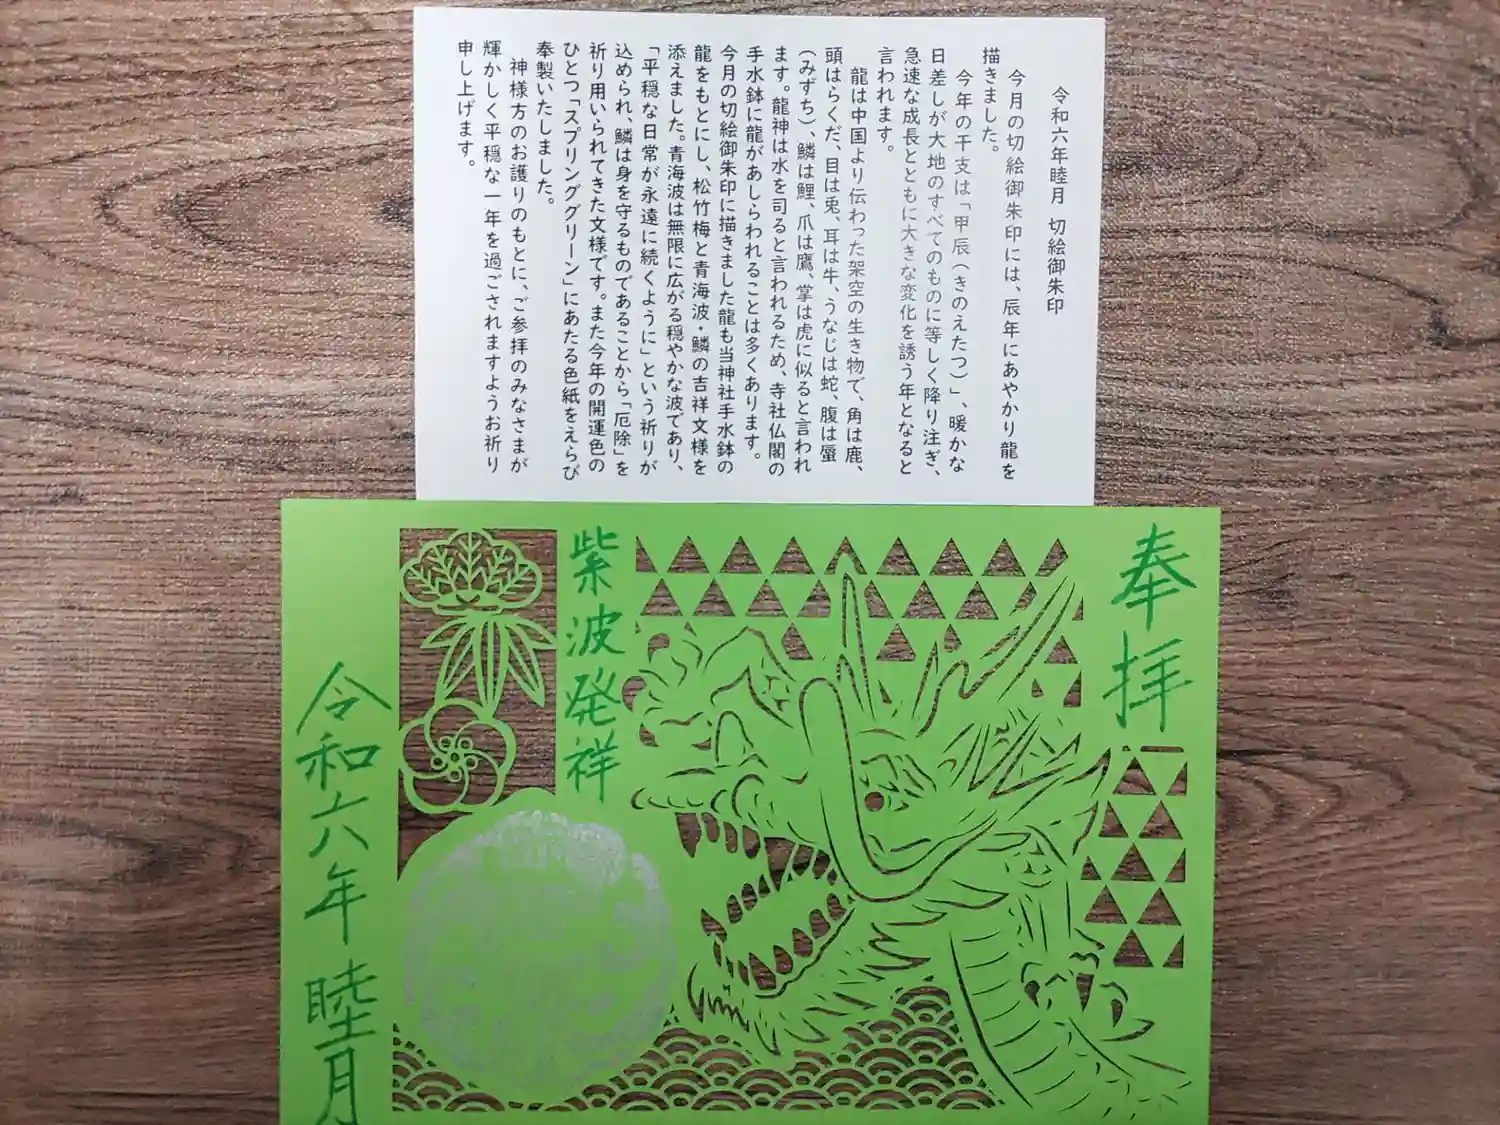 令和六年睦月 切絵御朱印
今月の切絵御朱印には、辰年にあやかり龍を
描きました。
今年の干支は「甲辰（きのえたつ）」、暖かな
日差しが大地のすべてのものに等しく降り注ぎ、
急速な成長とともに大きな変化を誘う年となると
言われます。
龍は中国より伝わった架空の生き物で、角は鹿、
頭はらくだ、目は兎、耳は牛、うなじは蛇、腹は蜃
（みずち）、鱗は鯉、爪は鷹、掌は虎に似ると言われ
ます。龍神は水を司ると言われるため、寺社仏閣の
手水鉢に龍があしらわれることは多くあります。
今月の切絵御朱印に描きました龍も当神社手水鉢の
龍をもとにし、松竹梅と青海波・鱗の吉祥文様を
添えました。青海波は無限に広がる穏やかな波であり、
「平穏な日常が永遠に続くように」という祈りが
込められ、鱗は身を守るものであることから「厄除」を
祈り用いられてきた文様です。また今年の開運色の
ひとつ「スプリンググリーン」にあたる色紙をえらび
奉製いたしました。
神様方のお護りのもとに、ご参拝のみなさまが
輝かしく平穏な一年を過ごされますようお祈り
申し上げます。
奉拝
紫波発祥
令和六年 睦月